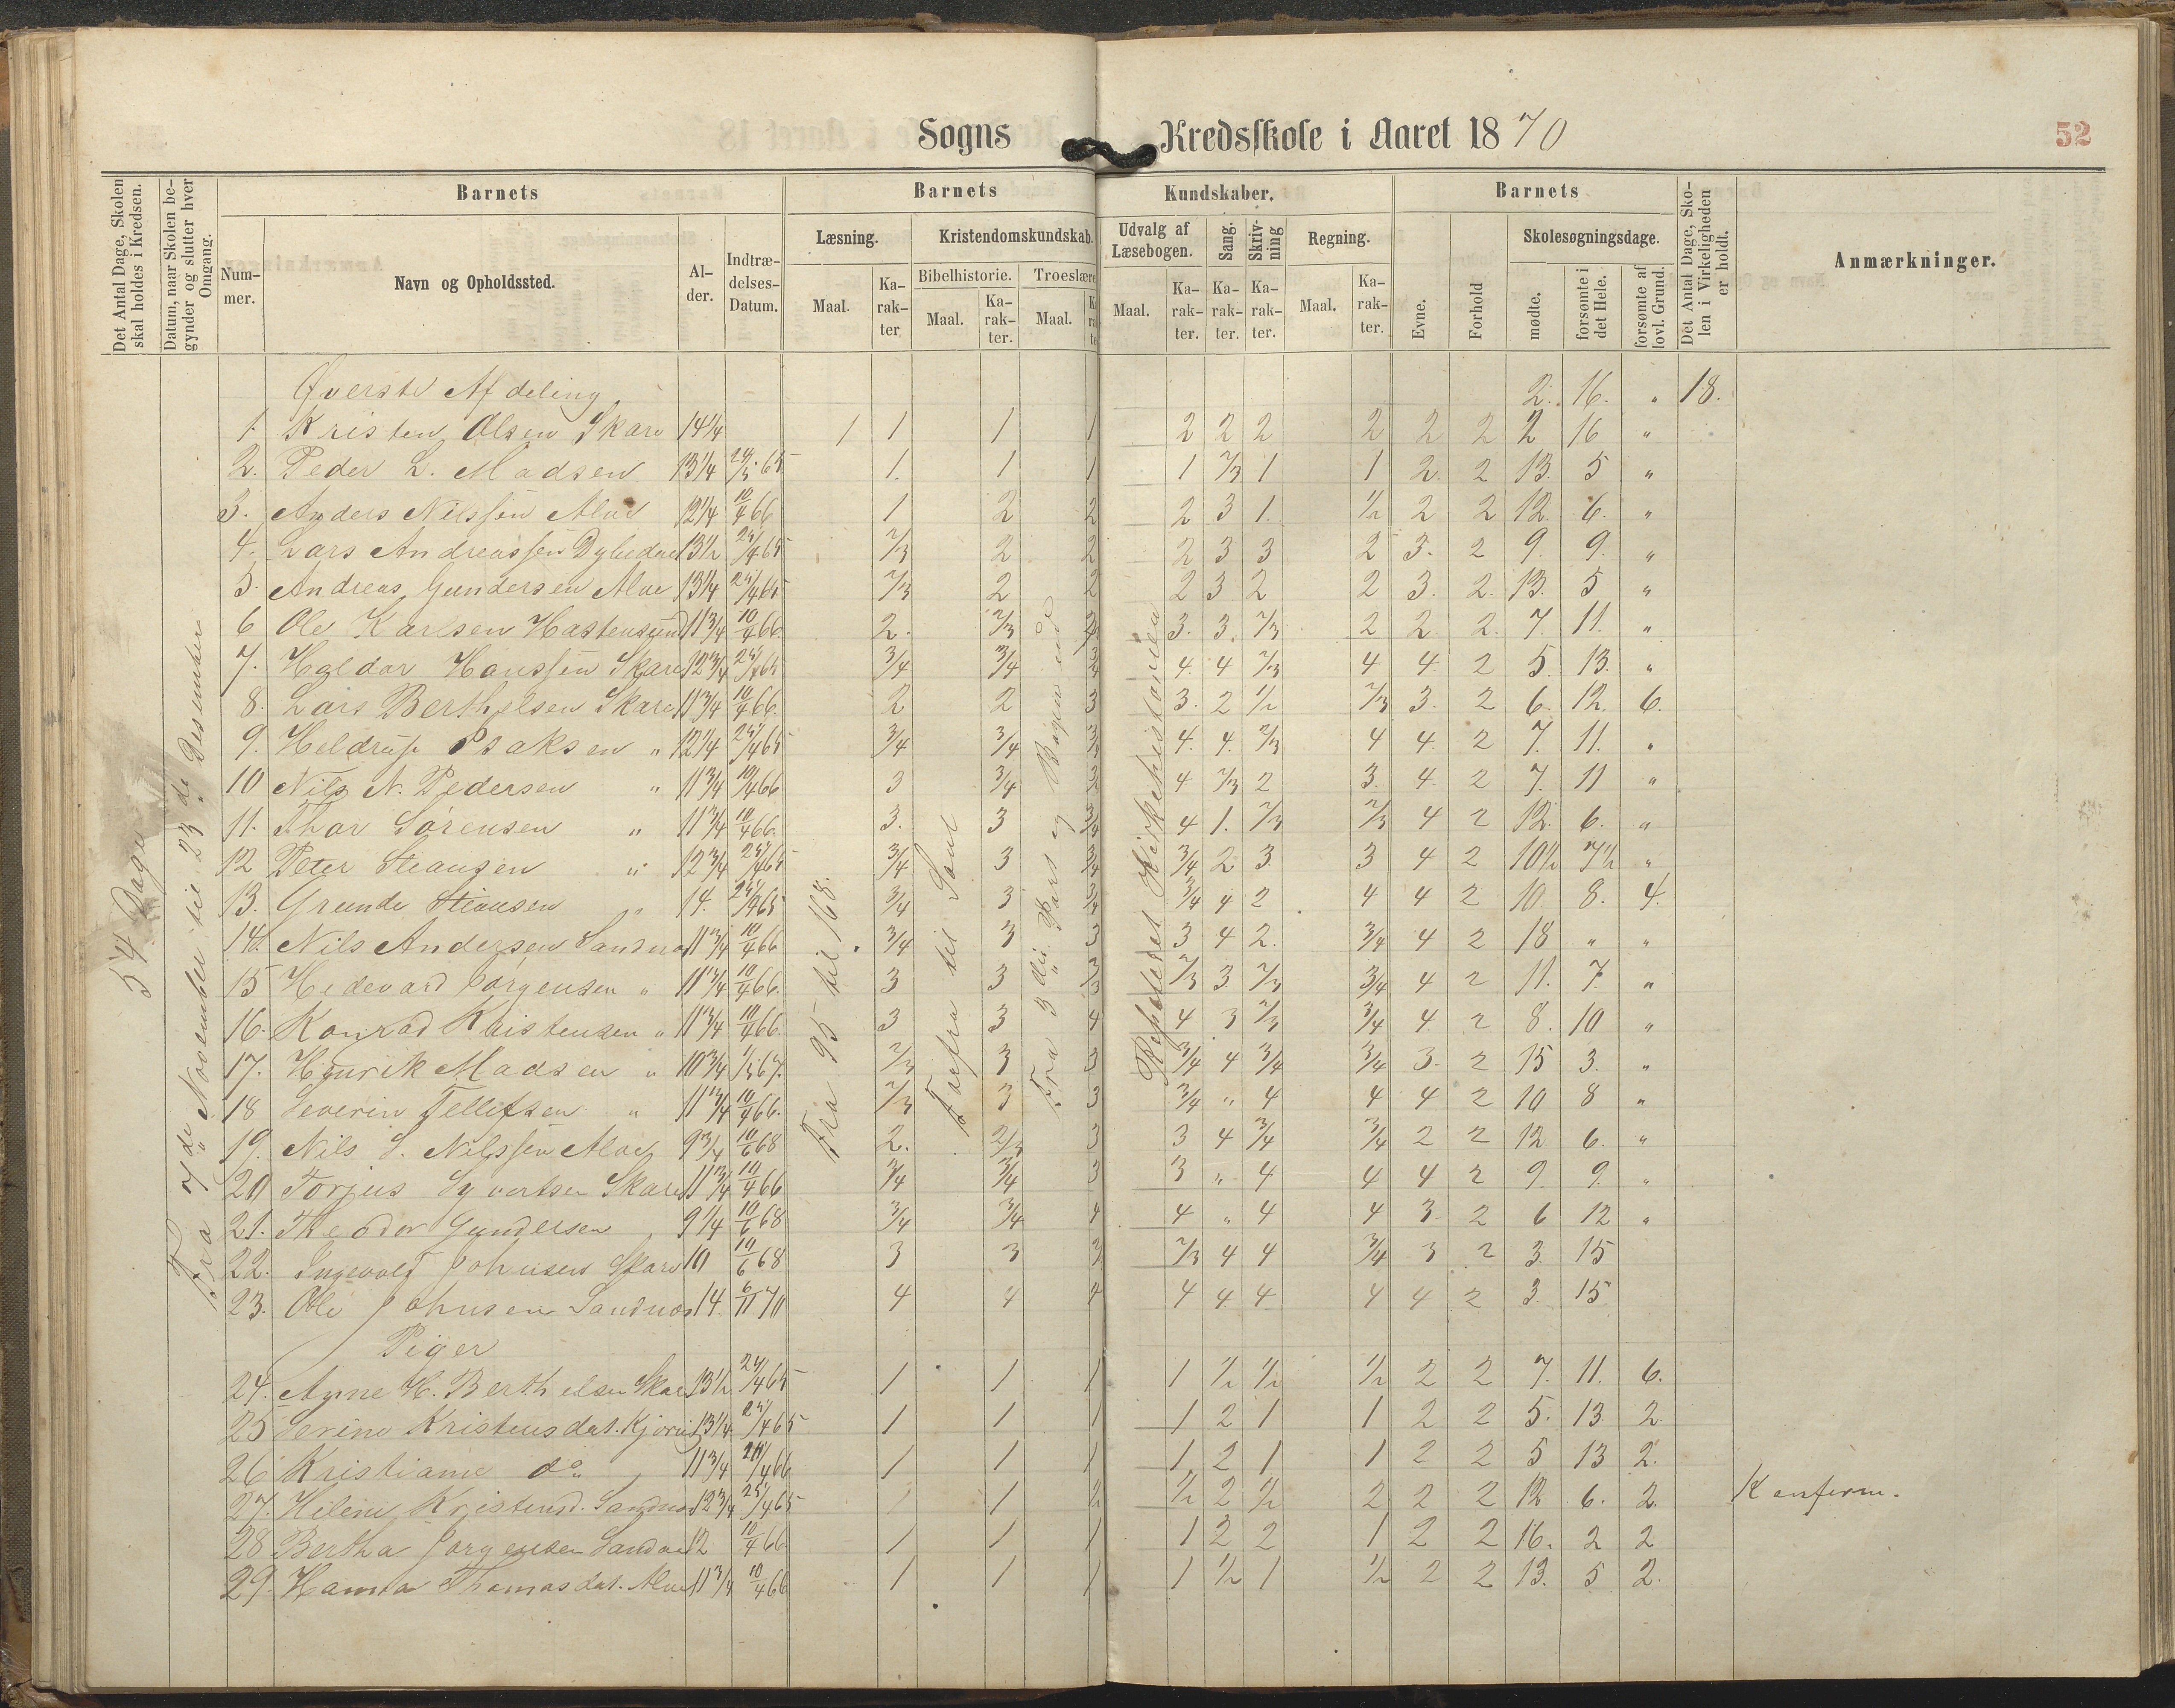 Sogns Kredsskole i Aaret 1870
52
Det Antal Dage, Skolen skal holdes i Kredsen.
Datum, naar Skolen begynder og slutter hver Omgang.
Barnets
Num-mer.
Navn og Opholdssted.
Al-der.
Indtræ-delses-Datum.
Barnets Kundskaber.
Læsning.
Maal.
Ka-rak-ter
Kristendomskundskab.
Bibelhistorie.
Maal.
Ka-rak-ter.
Troeslære
Maal.
Udvalg af Læsebogen.
Maal.
Ka-rak-ter.
Sang.
Ka-rak-ter.
Skriv-ning
Ka-rak-ter.
Regning.
Maal.
Ka-rak-ter.
Barnets
Evne.
Forhold
Skolesøgningsdage.
mødte.
forsømte i det Hele.
forsømte af lovl. Grund.
Det Antal Dage, Skolen i Virkeligheden er holdt.
Anmærkninger.
54 Dage
Fra 7de November til 23de Desember
Fra 95 til 168.
Forfra til Saul
Repeteret Kirkehistorien
Øverste Afdeling 2. 16. " 18.
1. Kristen Olsen Skare 14 1/4 1 1 1 1 2 2 2 2 2 2 2 16 "
2. Peder L. Madsen 13 1/4 1. 1 1 1 2/3 1 1 2. 2 13. 5 "
3. Anders Nilssen Alve 12 1/4 10/4 66 1 2 2 2 3 1. 1/2 2 2 12. 6. "
4. Lars Andreassen 13 1/2 24/4 65 2/3 2 2 2 3 3 2 3. 2 9. 9. "
5. Andreas Gundersen Alve 13 1/4 24/4 65 2/3 2 2 2 3 2 2 3. 2. 13. 5 "
6 Ole Karlsen Hastensund 11 3/4 10/4 66. 2. 2/3 3. 3. 2/3 2 2 2. 7. 11. "
7. Haldor Hanssen Skare 12 3/4 24/4 65 3/4 3/4 3/4 4. 4 2/3 4 4. 2 5. 13. "
8. Lars Berthelsen Skare 11 3/4 10/4 66. 2 2 3 3. 2 1/2 2/3 3. 2 6. 12. 6.
9. Heldrup Isaksen " 12 1/4 24/4 65 3/4 3/4 4. 4. 2/3 4 4. 2 7. 11. "
10 Nils N. Pedersen " 11 3/4 10/4 66 3 3/4 4 2/3 2 3. 4. 2 7. 11 "
11. Thor Sørensen " 11 3/4 10/4 66. 3. 3 3/4 4 1. 2/3 2/3 4 2 12. 6. "
12 Peter Stiansen " 12 3/4 24/4 65 3/4 3 3/4 3/4 2 3. 3 4 2 10 1/2 7 1/2 "
13. Grunde Stiansen " 14. 24/4 65 3/4 3 3/4 3/4 4 2 4 4 2 10 8. 4.
14. Nils Andersen Sandnæs 11 3/4 10/4 66 3/4 3 3 3 4 2. 3/4 4 2 18 " "
15 Hedevard Jørgensen " 11 3/4 10/4 66. 3 3 2/3 2/3 3 2/3 3/4 4 2 11. 7. "
16. Konrad Kristensen " 11 3/4 10/4 66. 3 3 4 4 3 2/3 3/4 4. 2 8. 10 "
17. Henrik Madsen " 10 3/4 67. 2/3 3 3 3/4 4 3/4 3/4 3. 2 15 3. "
18 Severin Tellefsen " 11 3/4 10/4 66. 2/3 3 3 3/4 " 4 4 4 2 10 8 "
19. Nils S. Nilssen Alve 9 3/4 10/6 68 2. 2/3 3 3 4 3/4 3/4 2 2 12 6. "
20 Torjus Syvertsen Skare 11 3/4 10/4 66 3/4 3/4 3 3 " 4 4 4 2 9. 9. "
21. Theodor Gundersen 9 1/4 10/6 68 3/4 3/4 4 4 " 4 4 3. 2 6 12 "
22. Ingevold Johnsen Skare 10 10/6 68 3 3 2/3 4 4 3/4 3 2 3. 15
23. Ole Johnsen Sandnæs 14. 6/11 70 4 4 4 4 4 4 4 4 2 3. 15
Piger
24. Anne H. Berthelsen Skare 13 1/2 24/4 65 1 1 1 1 1/2 1/2 1/2 2 2 7. 11. 6.
25 Serine Kristensdat. 13 1/4 24/4 65 1 1 1 1 2 1 1 2 2 5. 13. 2.
26 Kristiane do 11 3/4 66 1 1 1 1 2 1 1 2 2 5 13 2.
27. Helene Kristensd. Sandnæs 12 3/4 24/4 65 1 1 1/2 2 1/2 2 2 2 12 6. 2. Konferm.
28 Bertha Jørgensen Sandnæs 12 10/4 66 1 1 1 1 2 2 1 2 2 16. 2 2
29. Hanna Thomasdat. Alve 11 3/4 10/4 66 1 1 1 1 1/2 1 1/2 2 2 13. 5 2.